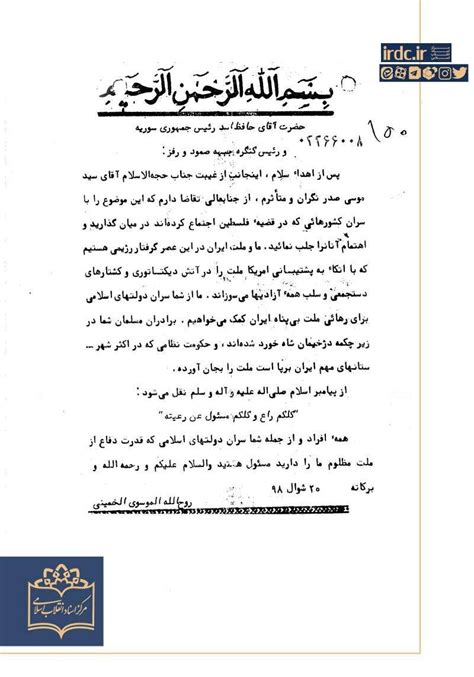 irdc.ir
بسم الله الرحمن الرحیم
حضرت آقای حافظ اسد رئیس جمهوری سوریه
۰۲۲۶۶۰۰۸
و رئیس کنگره جبهه صمود و رفز:
پس از اهداء سلام، اینجانب از غیبت جناب حجه‌الاسلام آقای سید
موسی صدر نگران و متأثرم، از جنابعالی تقاضا دارم که این موضوع را با
سران کشورهائی که در قضیه فلسطین اجتماع کرده‌اند در میان گذارید و
اهتمام آنانرا جلب نمائید. ما و ملت ایران در این عصر گرفتار رژیمی هستیم
که با اتکاء به پشتیبانی امریکا ملت را در آتش دیکتاتوری و کشتارهای
دستجمعی و سلب همه آزادیها می‌سوزاند. ما از شما سران دولتهای اسلامی
برای رهائی ملت بی‌پناه ایران کمک می‌خواهیم. برادران مسلمان شما در
زیر چکمه دژخیمان شاه خورد شده‌اند، و حکومت نظامی که در اکثر شهر...
ستانهای مهم ایران برپا است ملت را بجان آورده.
از پیامبر اسلام صلی‌اله علیه و آله و سلم نقل می‌شود:
"کلکم راع و کلکم مسئول عن رعیته"
همه افراد و از جمله شما سران دولتهای اسلامی که قدرت دفاع از
ملت مظلوم ما را دارید مسئول هستید والسلام علیکم و رحمه الله و
برکاته ۲۰ شوال ۹۸
روح الله الموسوی الخمینی
مرکز اسناد انقلاب اسلامی